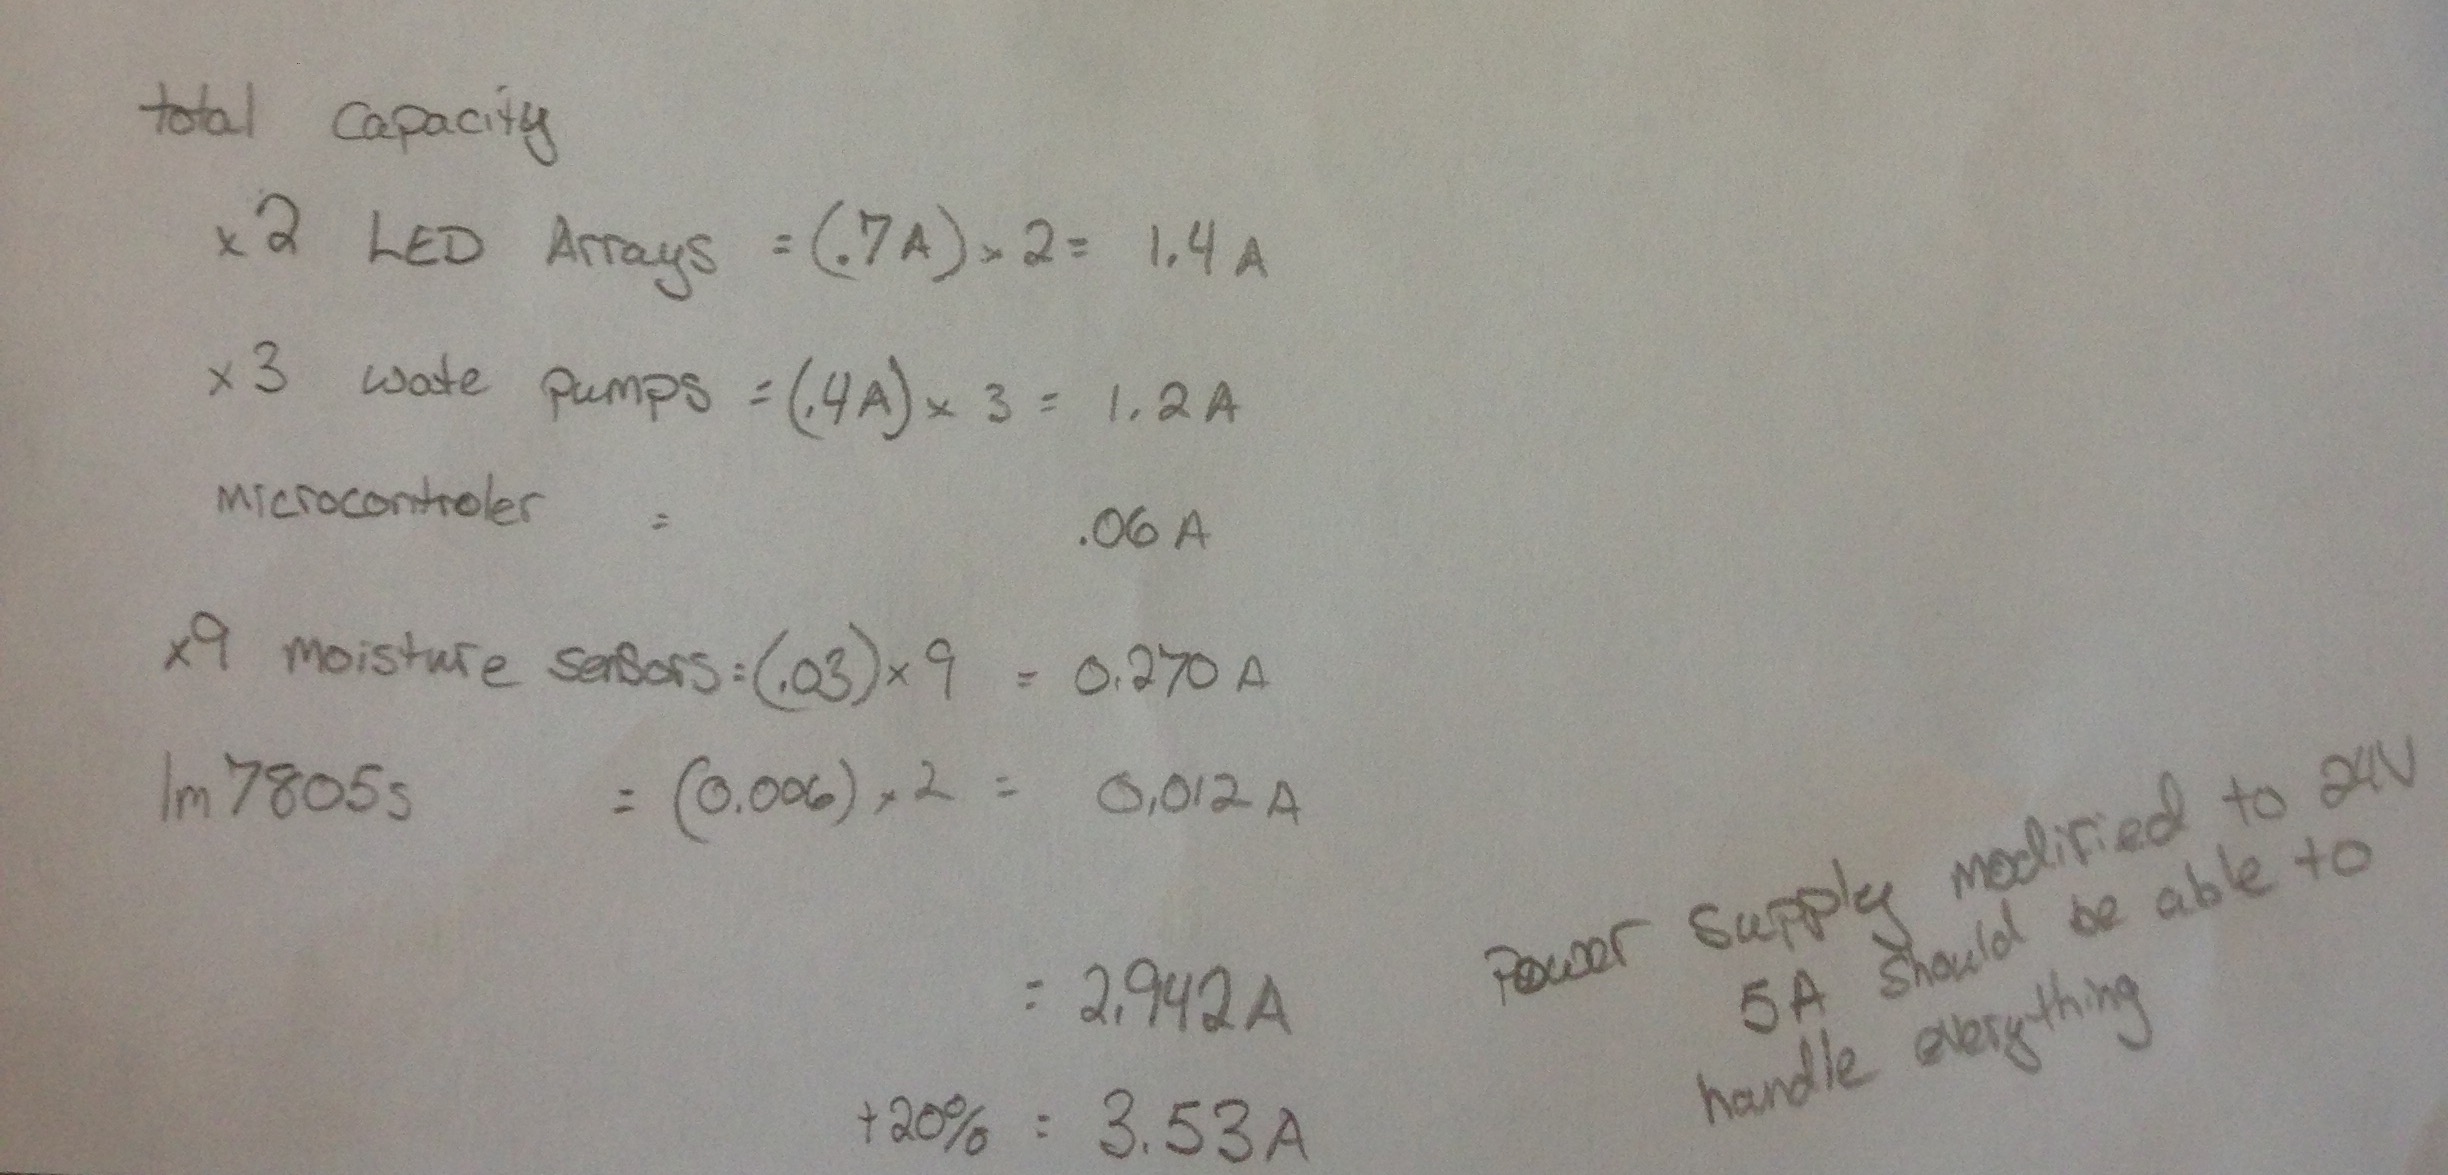 total capacity
x2 LED Arrays = (.7A) x 2 = 1.4 A
x3 wate pumps = (.4A) x 3 = 1.2 A
microcontroler = .06 A
x9 moisture sensors = (.03) x 9 = 0.270 A
lm 7805s = (0.006) x 2 = 0.012 A
= 2.942 A
+20% = 3.53 A
Power Supply modified to 24V
5A should be able to
handle everything